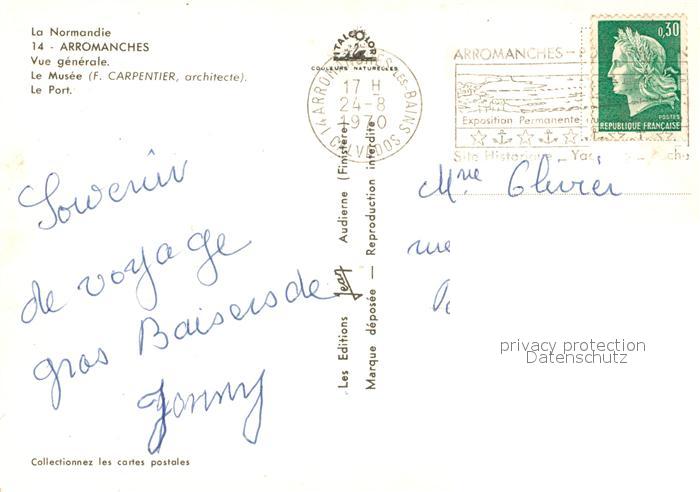 La Normandie
14 - ARROMANCHES
Vue générale.
Le Musée (F. CARPENTIER, architecte).
Le Port.
ITALCOLOR
COULEURS NATURELLES
14 ARROMANCHES-LES-BAINS
17 H
24-8
1970
CALVADOS
ARROMANCHES —
Exposition Permanente
Site Historique -
0,30
POSTES
REPUBLIQUE FRANÇAISE
Souvenir
de voyage
gros Baisers de
Jonny
Les Editions Jean Audierne (Finistère)
Marque déposée — Reproduction interdite
Mme Olivier
rue
privacy protection
Datenschutz
Collectionnez les cartes postales